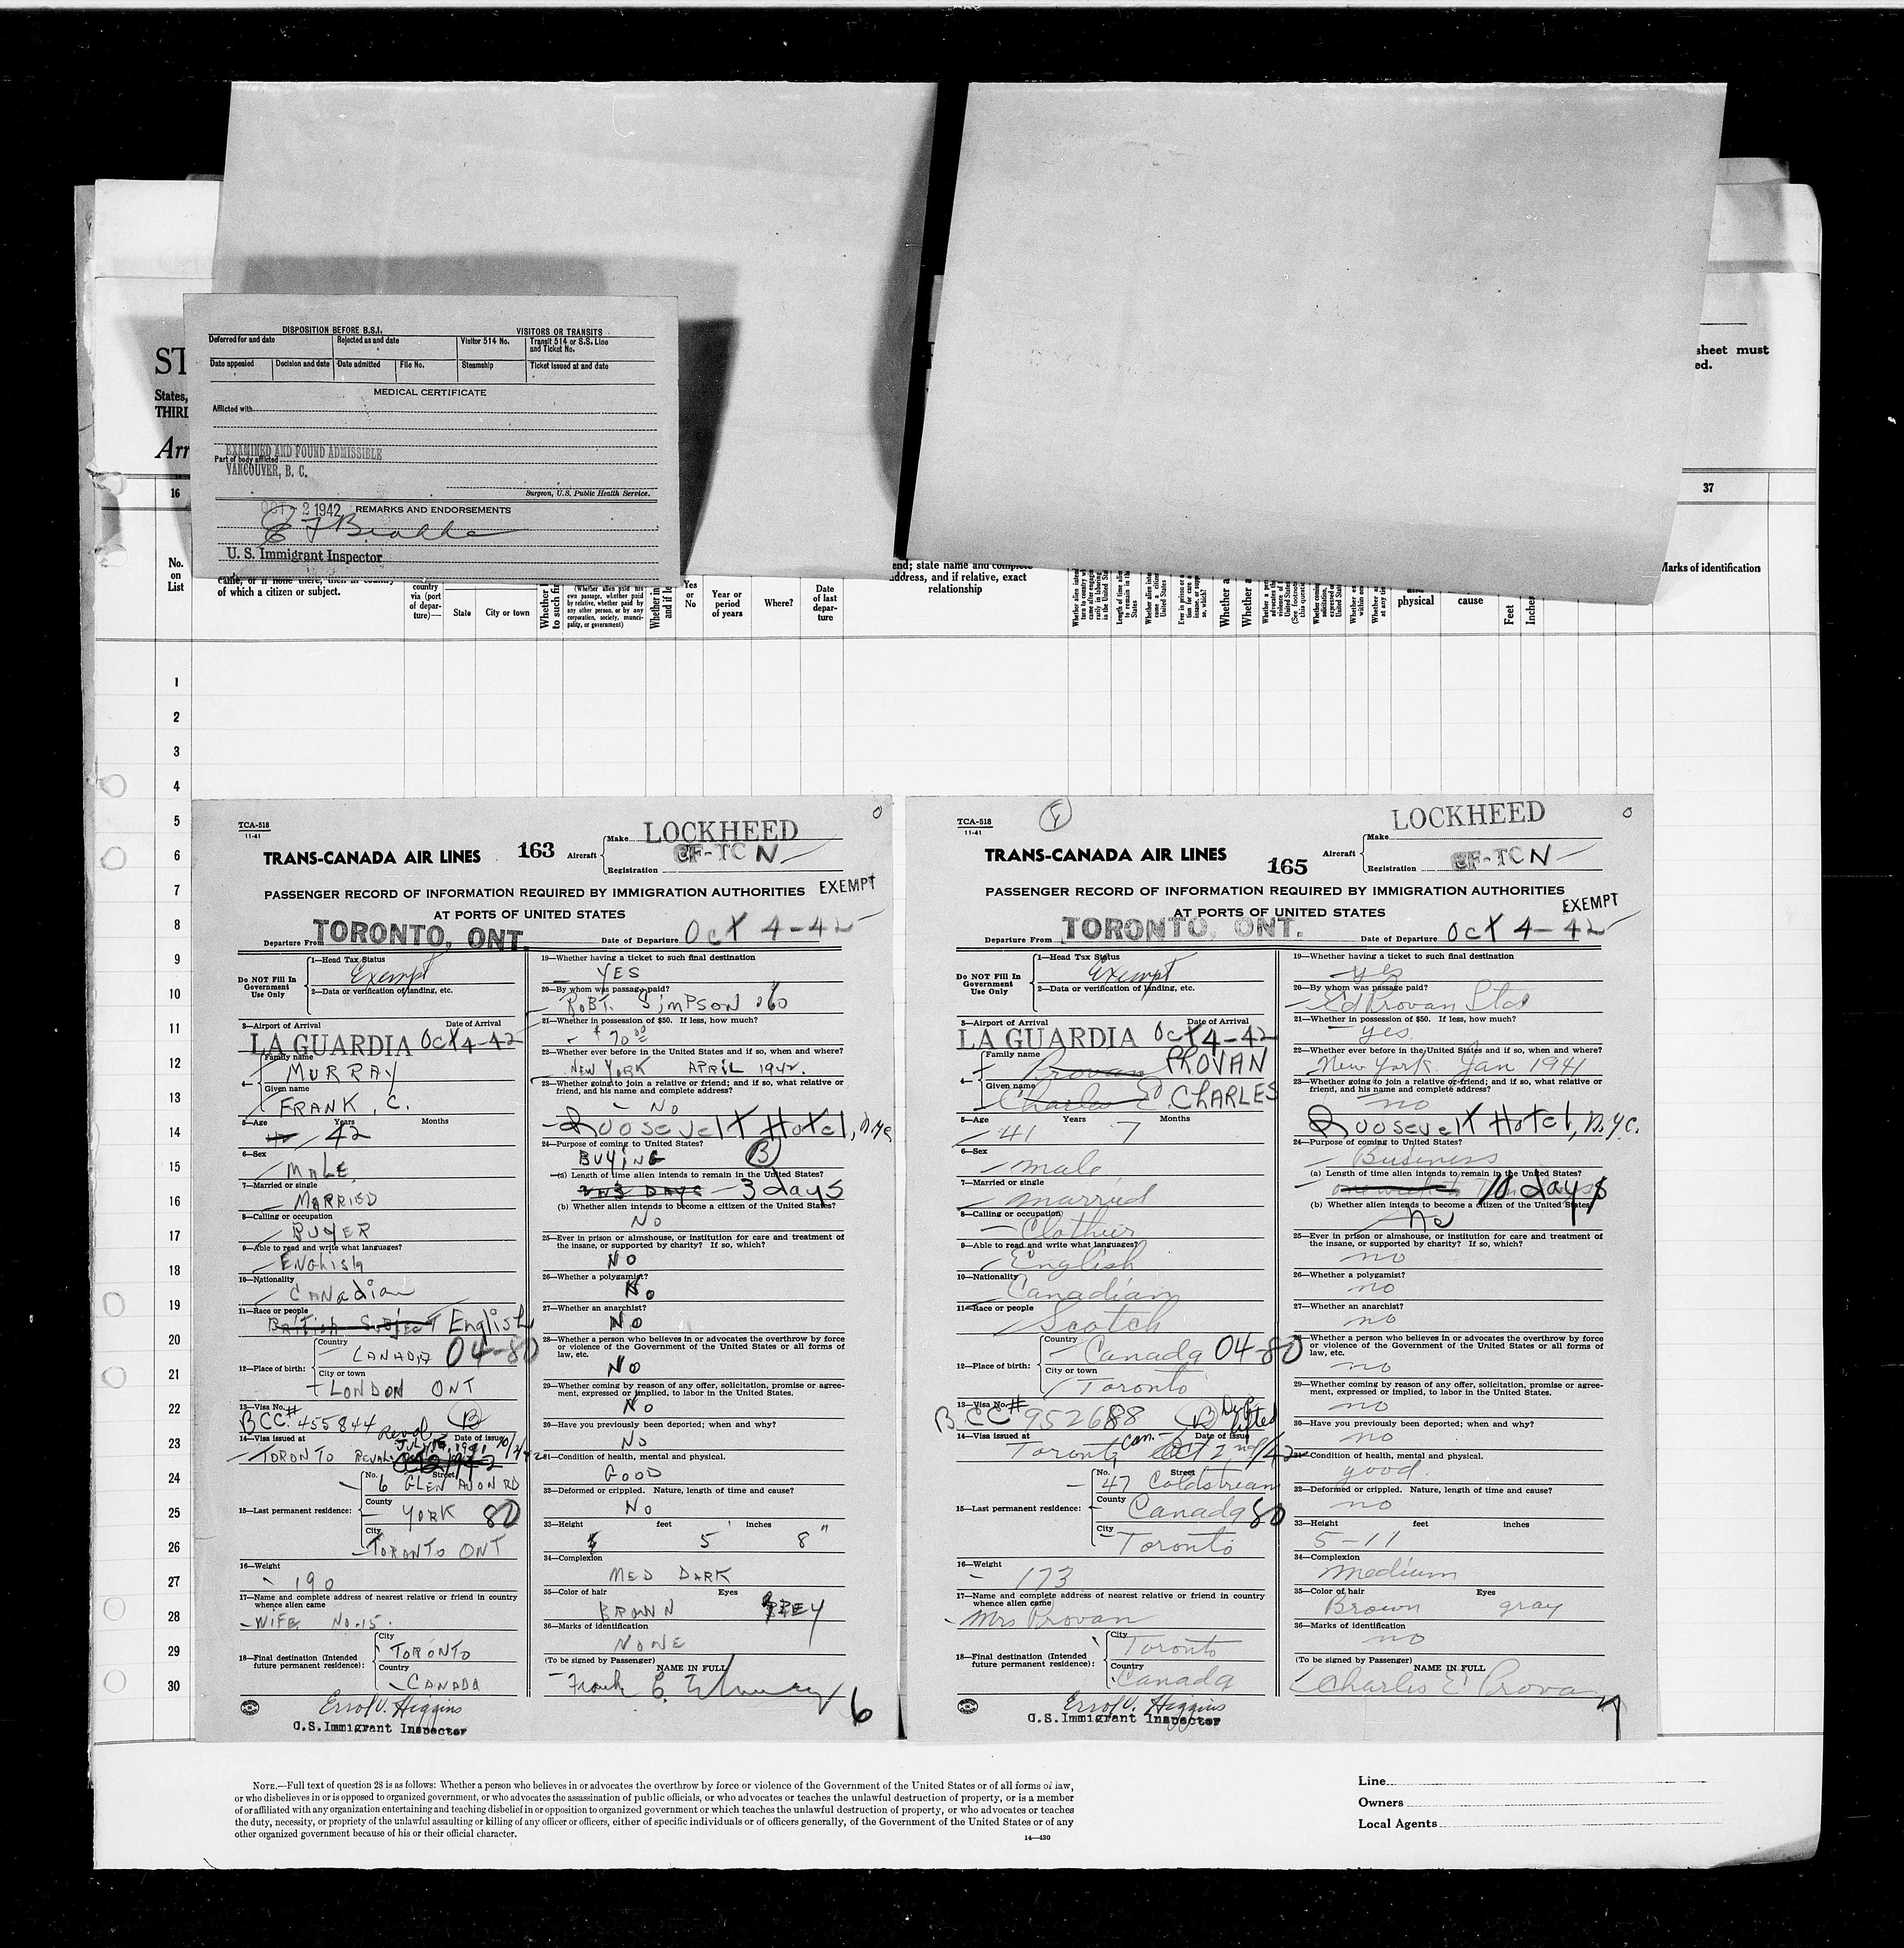 DISPOSITION BEFORE B.S.I. VISITORS OR TRANSITS
Deferred for and date Rejected as and date Visitor 514 No. Transit 514 or S.S. Line and Ticket No.
Date appealed Decision and date Date admitted File No. Steamship Ticket issued at and date
MEDICAL CERTIFICATE
Afflicted with
EXAMINED AND FOUND ADMISSIBLE
Part of body afflicted
VANCOUVER, B. C.
Surgeon, U.S. Public Health Service.
OCT - 2 1942 REMARKS AND ENDORSEMENTS
U. S. Immigrant Inspector
ST
States,
THIRD
Arr
sheet must
ed.
16
37
No. on List
came, or if none there, then in country of which a citizen or subject.
country via (port of departure)—
State
City or town
(Whether alien paid his own passage, whether paid by relative, whether paid by any other person, or by any corporation, society, municipality, or government)
Yes or No
Year or period of years
Where?
Date of last departure
end; state name and complete address, and if relative, exact relationship
physical
cause
Feet
Inches
Marks of identification
1
2
3
4
5
6
7
8
9
10
11
12
13
14
15
16
17
18
19
20
21
22
23
24
25
26
27
28
29
30
TCA-518
11-41
TRANS-CANADA AIR LINES 163 Aircraft
Make LOCKHEED
Registration CF-TCN
PASSENGER RECORD OF INFORMATION REQUIRED BY IMMIGRATION AUTHORITIES EXEMPT
AT PORTS OF UNITED STATES
Departure From TORONTO, ONT. Date of Departure Oct 4-42
Do NOT Fill In Government Use Only
1—Head Tax Status
Exempt
2—Data or verification of landing, etc.
3—Airport of Arrival Date of Arrival
LA GUARDIA Oct 4-42
4— Family name
MURRAY
Given name
FRANK, C.
5—Age Years Months
42
6—Sex
MALE
7—Married or single
MARRIED
8—Calling or occupation
BUYER
9—Able to read and write what languages?
ENGLISH
10—Nationality
CANADIAN
11—Race or people
BRITISH SUBJECT English
12—Place of birth: Country
CANADA 04-80
City or town
LONDON ONT
13—Visa No.
BCC# 455844 B
14—Visa issued at Date of issue
TORONTO
15—Last permanent residence: No. Street
6 GLEN AVON RD
County
YORK 80
City
TORONTO ONT
16—Weight
190
17—Name and complete address of nearest relative or friend in country whence alien came
WIFE NO. 15.
18—Final destination (Intended future permanent residence): City
TORONTO
Country
CANADA
Errol V. Higgins
U.S. Immigrant Inspector
19—Whether having a ticket to such final destination
YES
20—By whom was passage paid?
ROBT. SIMPSON
21—Whether in possession of $50. If less, how much?
$70.00
22—Whether ever before in the United States and if so, when and where?
NEW YORK APRIL 1942.
23—Whether going to join a relative or friend; and if so, what relative or friend, and his name and complete address?
NO
Roosevelt Hotel, N.Y.C.
24—Purpose of coming to United States?
BUYING B
(a) Length of time alien intends to remain in the United States?
3 days
(b) Whether alien intends to become a citizen of the United States?
NO
25—Ever in prison or almshouse, or institution for care and treatment of the insane, or supported by charity? If so, which?
NO
26—Whether a polygamist?
NO
27—Whether an anarchist?
NO
28—Whether a person who believes in or advocates the overthrow by force or violence of the Government of the United States or all forms of law, etc.
NO
29—Whether coming by reason of any offer, solicitation, promise or agreement, expressed or implied, to labor in the United States.
NO
30—Have you previously been deported; when and why?
NO
31—Condition of health, mental and physical.
GOOD
32—Deformed or crippled. Nature, length of time and cause?
NO
33—Height feet inches
5 ' 8 "
34—Complexion
MED DARK
35—Color of hair Eyes
BROWN GREY
36—Marks of identification
NONE
(To be signed by Passenger) NAME IN FULL
Frank C. Murray
6
TCA-518
11-41
TRANS-CANADA AIR LINES 165 Aircraft
Make LOCKHEED
Registration CF-TCN
PASSENGER RECORD OF INFORMATION REQUIRED BY IMMIGRATION AUTHORITIES
AT PORTS OF UNITED STATES EXEMPT
Departure From TORONTO, ONT. Date of Departure Oct 4-42
Do NOT Fill In Government Use Only
1—Head Tax Status
Exempt
2—Data or verification of landing, etc.
3—Airport of Arrival Date of Arrival
LA GUARDIA Oct 4-42
4— Family name
Provan PROVAN
Given name
Charles E. CHARLES
5—Age Years Months
41 7
6—Sex
male
7—Married or single
married
8—Calling or occupation
Clothier
9—Able to read and write what languages?
English
10—Nationality
Canadian
11—Race or people
Scotch
12—Place of birth: Country
Canada 04-80
City or town
Toronto
13—Visa No.
BCC# 952688 B
14—Visa issued at Date of issue
Toronto Can. Oct 2nd/42
15—Last permanent residence: No. Street
47 Coldstream
County
Canada 80
City
Toronto
16—Weight
173
17—Name and complete address of nearest relative or friend in country whence alien came
Mrs Provan
18—Final destination (Intended future permanent residence): City
Toronto
Country
Canada
Errol V. Higgins
U.S. Immigrant Inspector
19—Whether having a ticket to such final destination
yes
20—By whom was passage paid?
Ed Provan Ltd
21—Whether in possession of $50. If less, how much?
yes.
22—Whether ever before in the United States and if so, when and where?
New York. Jan 1941
23—Whether going to join a relative or friend; and if so, what relative or friend, and his name and complete address?
no
Roosevelt Hotel, N.Y.C.
24—Purpose of coming to United States?
Business
(a) Length of time alien intends to remain in the United States?
10 days
(b) Whether alien intends to become a citizen of the United States?
no
25—Ever in prison or almshouse, or institution for care and treatment of the insane, or supported by charity? If so, which?
no
26—Whether a polygamist?
no
27—Whether an anarchist?
no
28—Whether a person who believes in or advocates the overthrow by force or violence of the Government of the United States or all forms of law, etc.
no
29—Whether coming by reason of any offer, solicitation, promise or agreement, expressed or implied, to labor in the United States.
no
30—Have you previously been deported; when and why?
no
31—Condition of health, mental and physical.
good.
32—Deformed or crippled. Nature, length of time and cause?
no
33—Height feet inches
5-11
34—Complexion
Medium
35—Color of hair Eyes
Brown gray
36—Marks of identification
no
(To be signed by Passenger) NAME IN FULL
Charles E Provan
7
NOTE.—Full text of question 28 is as follows: Whether a person who believes in or advocates the overthrow by force or violence of the Government of the United States or of all forms of law,
or who disbelieves in or is opposed to organized government, or who advocates the assassination of public officials, or who advocates or teaches the unlawful destruction of property, or is a member
of or affiliated with any organization entertaining and teaching disbelief in or opposition to organized government or which teaches the unlawful destruction of property, or who advocates or teaches
the duty, necessity, or propriety of the unlawful assaulting or killing of any officer or officers, either of specific individuals or of officers generally, of the Government of the United States or of any
other organized government because of his or their official character.
14—430
Line
Owners
Local Agents